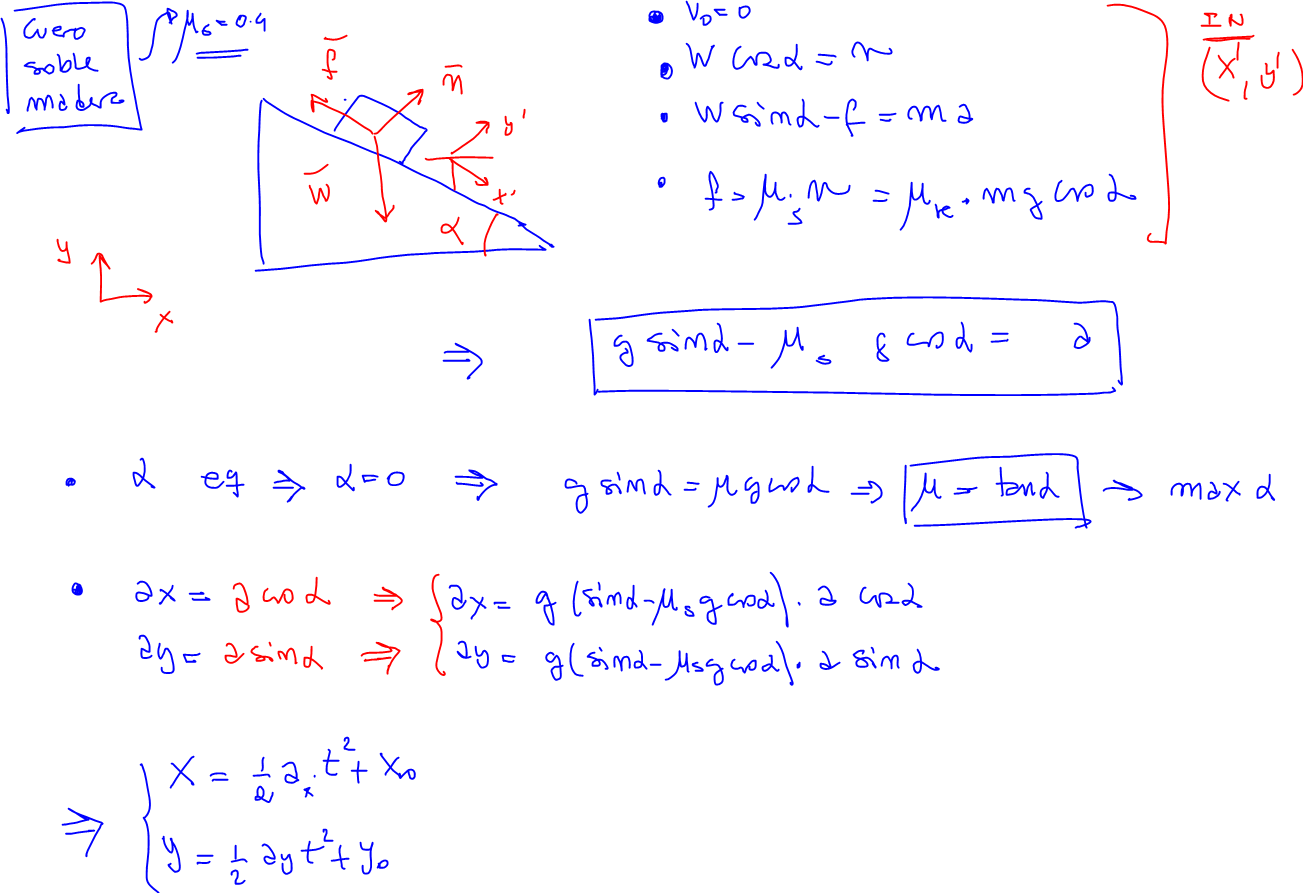 Cuero
soble
madera
μs = 0.4
f̄
n̄
y'
W̄
x'
α
y
x
• V₀ = 0
• W cos α = n
• W sin α - f = m a
• f = μs n = μke · mg cos α
IN
(x', y')
⇒ g sin α - μs g cos α = a
• α eq ⇒ α = 0 ⇒ g sin α = μ g cos α ⇒ μ = tan α → max α
• ax = a cos α ⇒ { ax = g (sin α - μs g cos α) · a cos α
ay = a sin α ⇒ { ay = g (sin α - μs g cos α) · a sin α
⇒ { X = 1/2 ax · t² + X₀
y = 1/2 ay t² + y₀